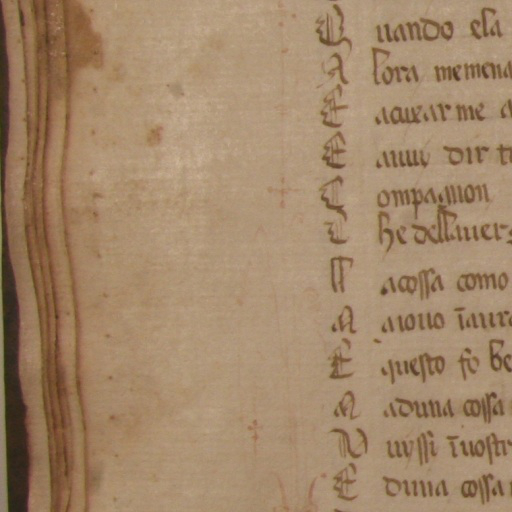 Quando ela
A lora me mena
E acuxar me a
E auuy dir t
C ompagnon
C he della uer
L acossa como
M aiouo ĩaura
E questo fo be
M aduna cossa
N uyssi ĩuostr
E duna cossa